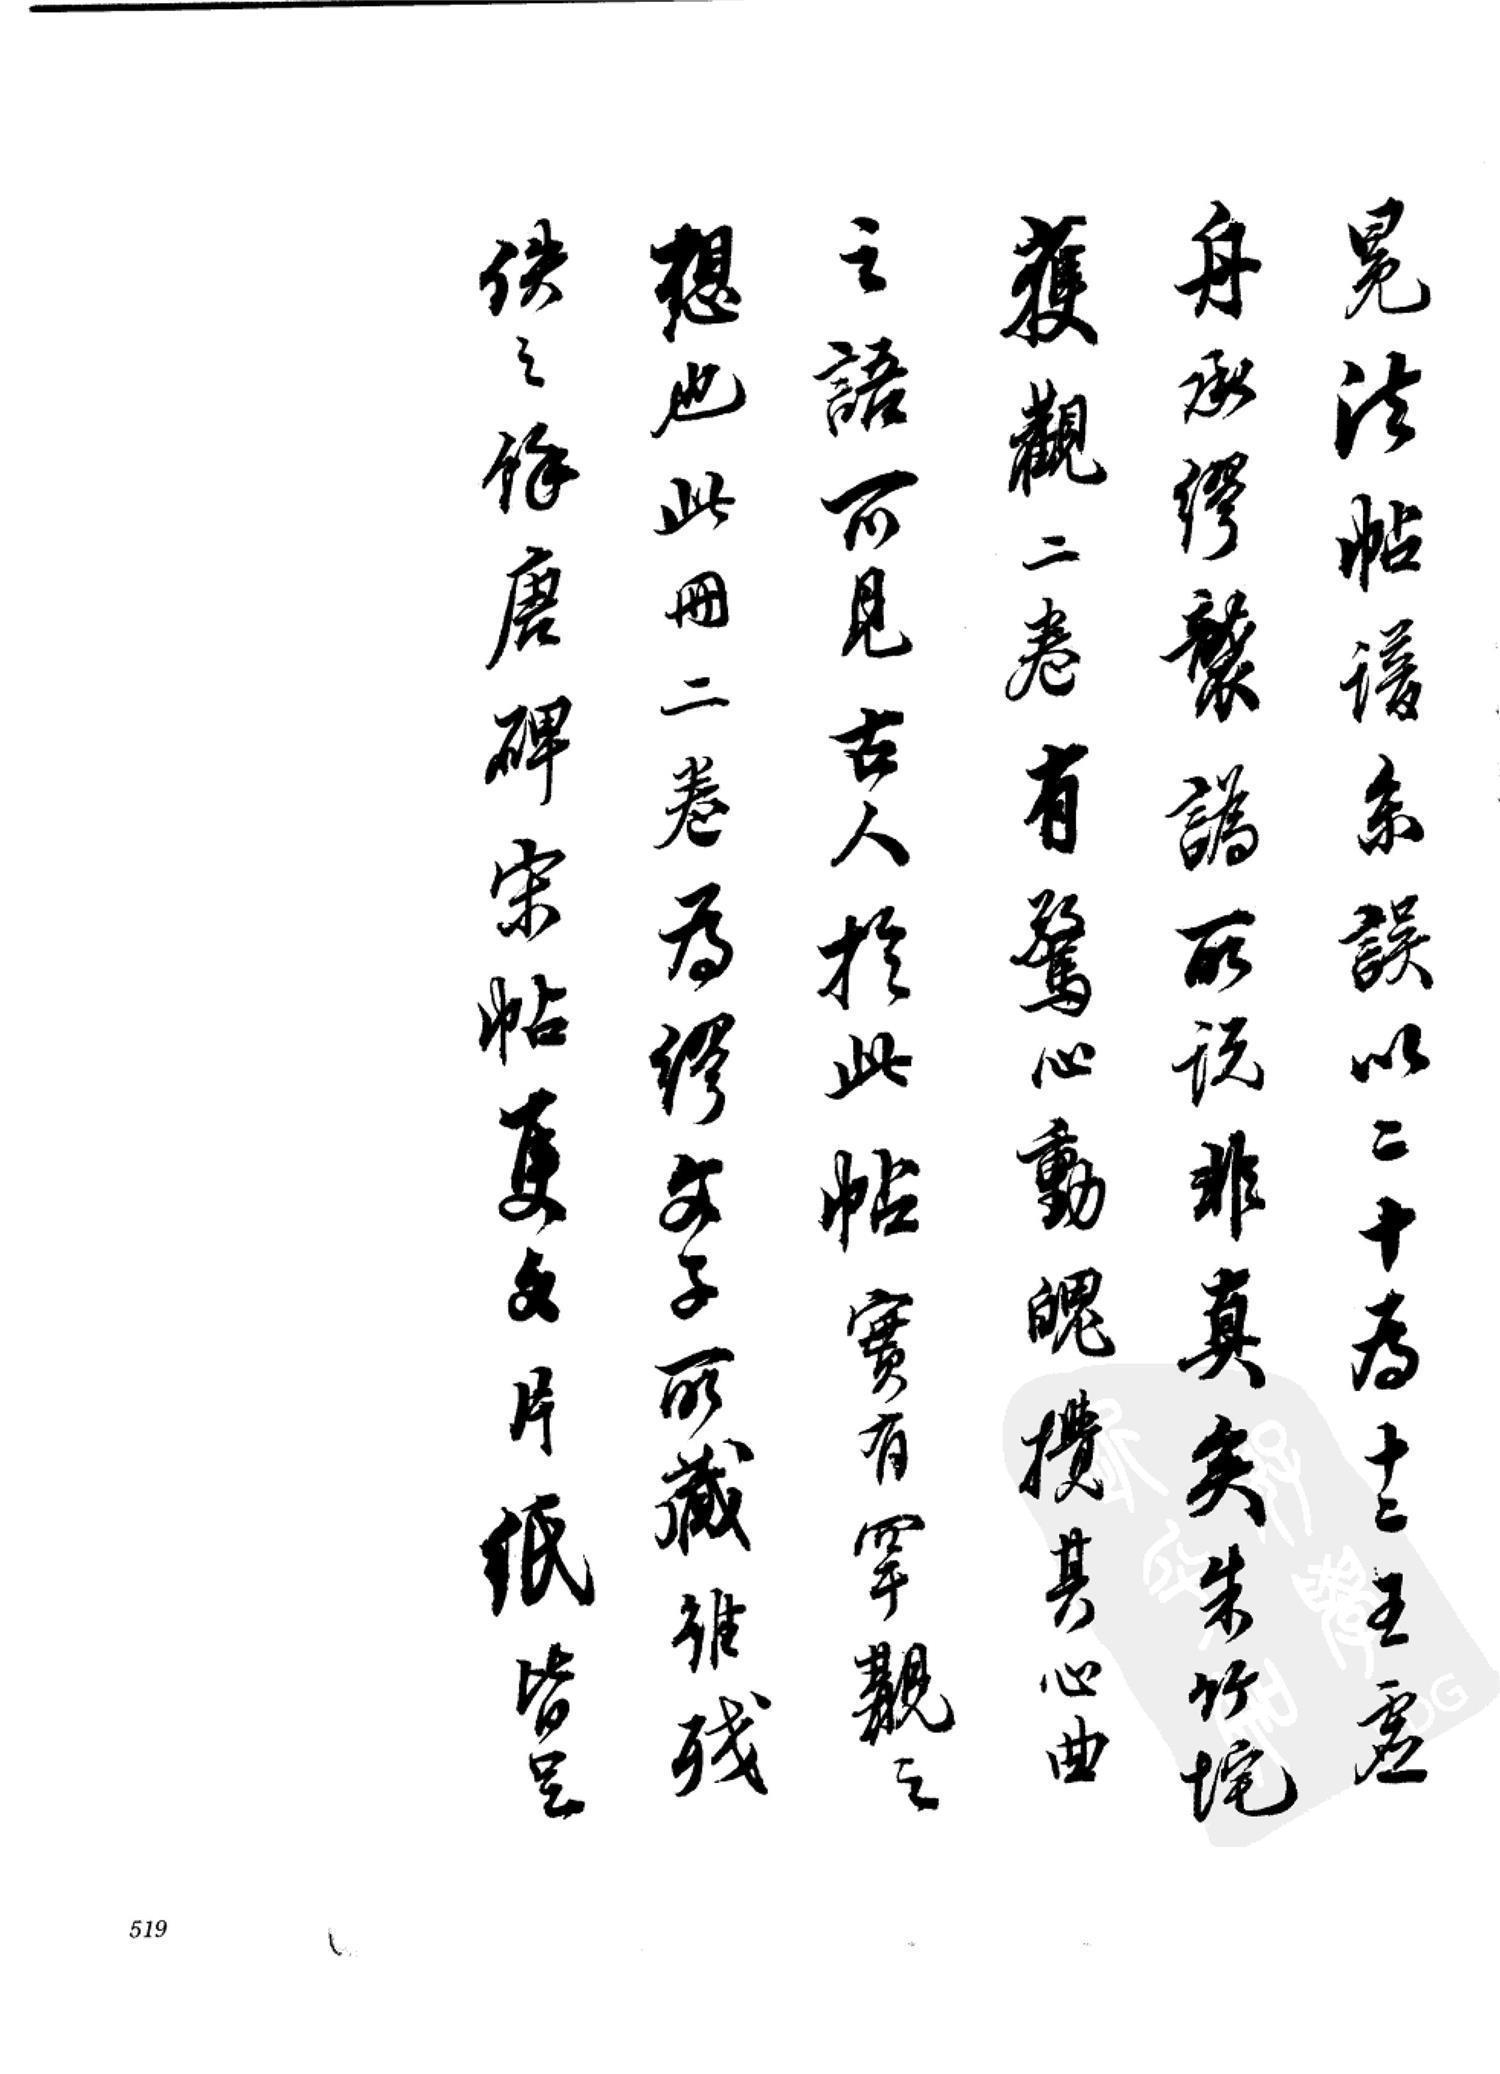 晃法帖譜系誤以二十為十二王虛
舟承繆襲譌所説非真矣朱竹垞
獲觀二卷有驚心動魄攪其心曲
之語所見古人於此帖實有罕觀之
想也此冊二卷為繆文子所藏雖殘
佚之餘唐碑宋帖隻文片紙皆足
519